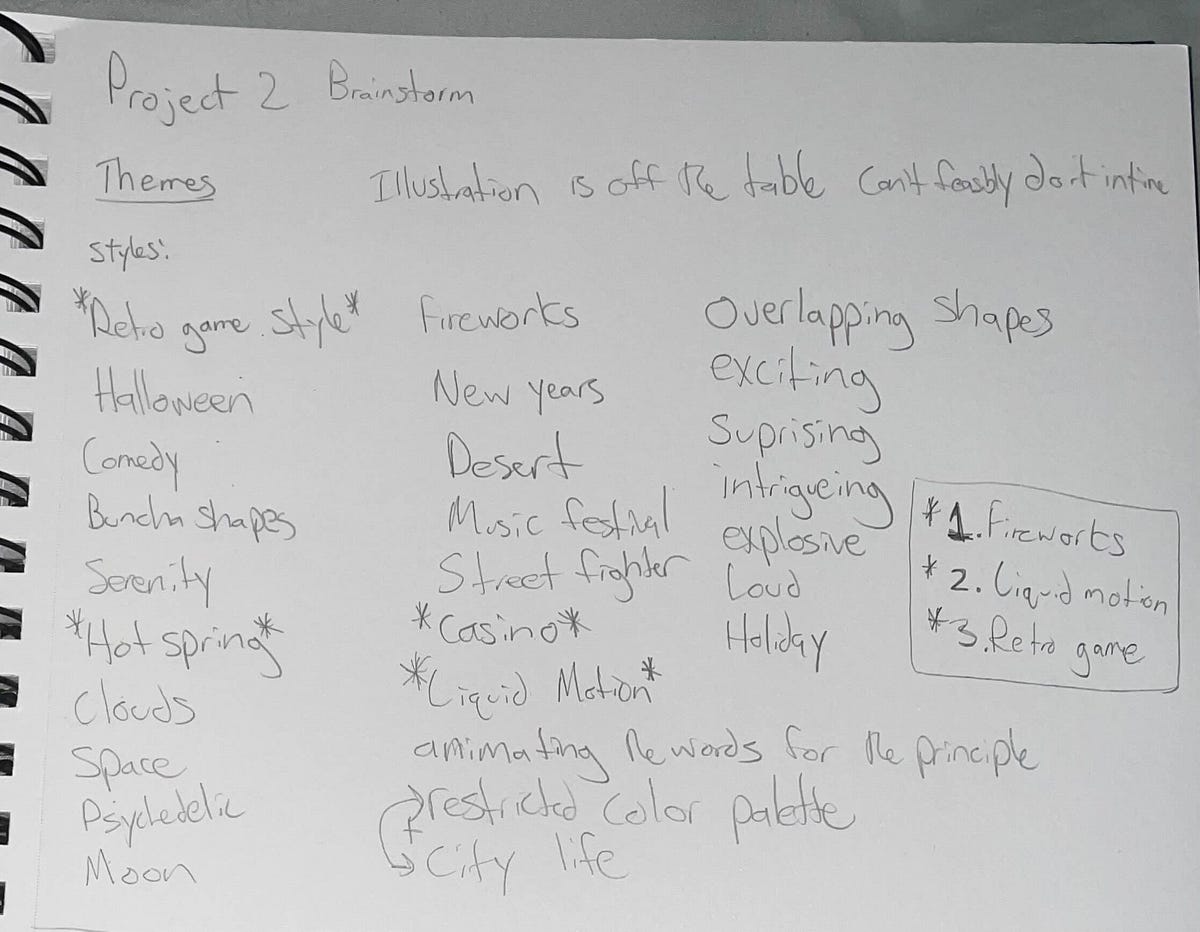 Project 2 Brainstorm
Themes
Illustration is off the table Can't feasbly do it in time
Styles:
*Retro game style*
Halloween
Comedy
Buncha shapes
Serenity
*Hot spring*
Clouds
Space
Psychedelic
Moon
Fireworks
New years
Desert
Music festival
Street fighter
*Casino*
*Liquid Motion*
animating the words for the principle
restricted color palette
+
City life
Overlapping shapes
exciting
Suprising
intrigueing
explosive
Loud
Holiday
*1. Fireworks
*2. Liquid motion
*3. Retro game